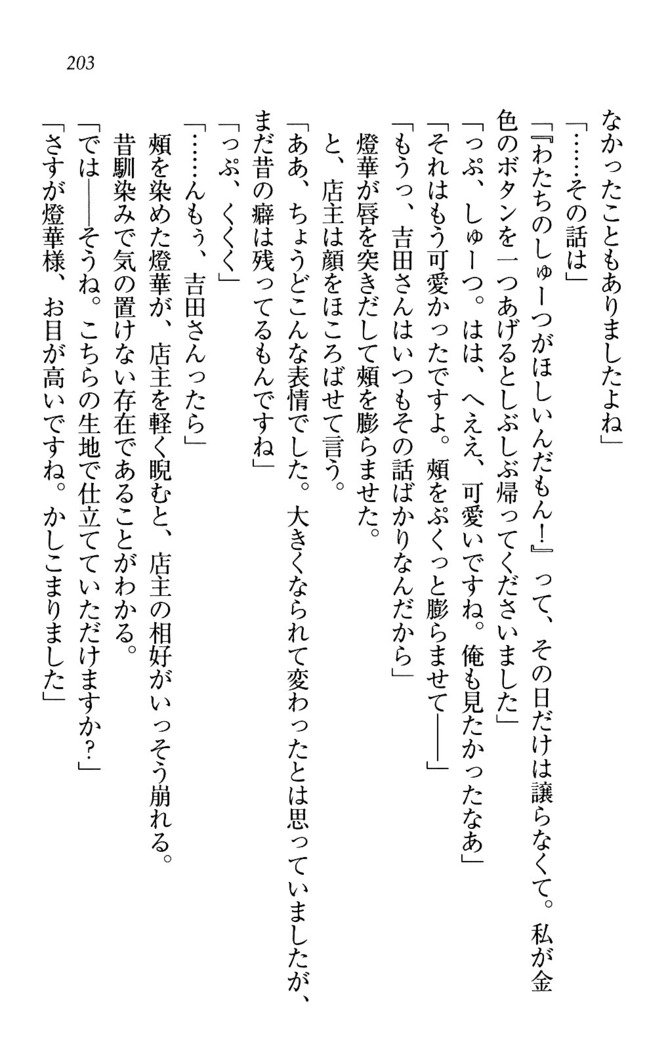 203
なかったこともありましたよね」
「……その話は」
「『わたちのしゅーつがほしいんだもん！』って、その日だけは譲らなくて。私が金
色のボタンを一つあげるとしぶしぶ帰ってくださいました」
「っぷ、しゅーつ。はは、へええ、可愛いですね。俺も見たかったなあ」
「それはもう可愛かったですよ。頬をぷくっと膨らませて――」
「もうっ、吉田さんはいつもその話ばかりなんだから」
燈華が唇を突きだして頬を膨らませた。
と、店主は顔をほころばせて言う。
「ああ、ちょうどこんな表情でした。大きくなられて変わったとは思っていましたが、
まだ昔の癖は残ってるもんですね」
「っぷ、くくく」
「……んもぅ、吉田さんったら」
頬を染めた燈華が、店主を軽く睨むと、店主の相好がいっそう崩れる。
昔馴染みで気の置けない存在であることがわかる。
「では――そうね。こちらの生地で仕立てていただけますか？」
「さすが燈華様、お目が高いですね。かしこまりました」